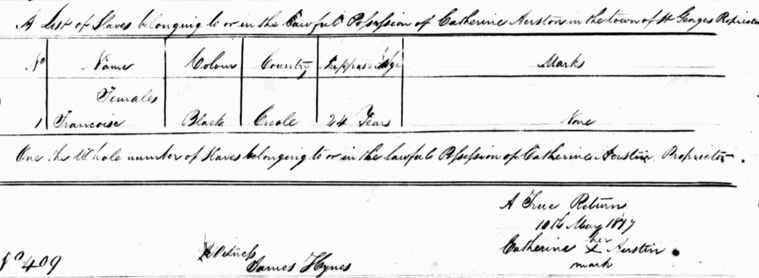 A List of Slaves belonging to or in the Lawful Possession of Catherine Aerstin in the town of St Georges Proprietor
No Name Colour Country Supposed Age Marks
Females
1 Francoise Black Creole 24 Years None
One the Whole number of Slaves belonging to or in the lawful Possession of Catherine Aerstin Proprietor.
A True Return
10th May 1817
Catherine her x Aerstin
mark
Witness
James Hynes
No 409